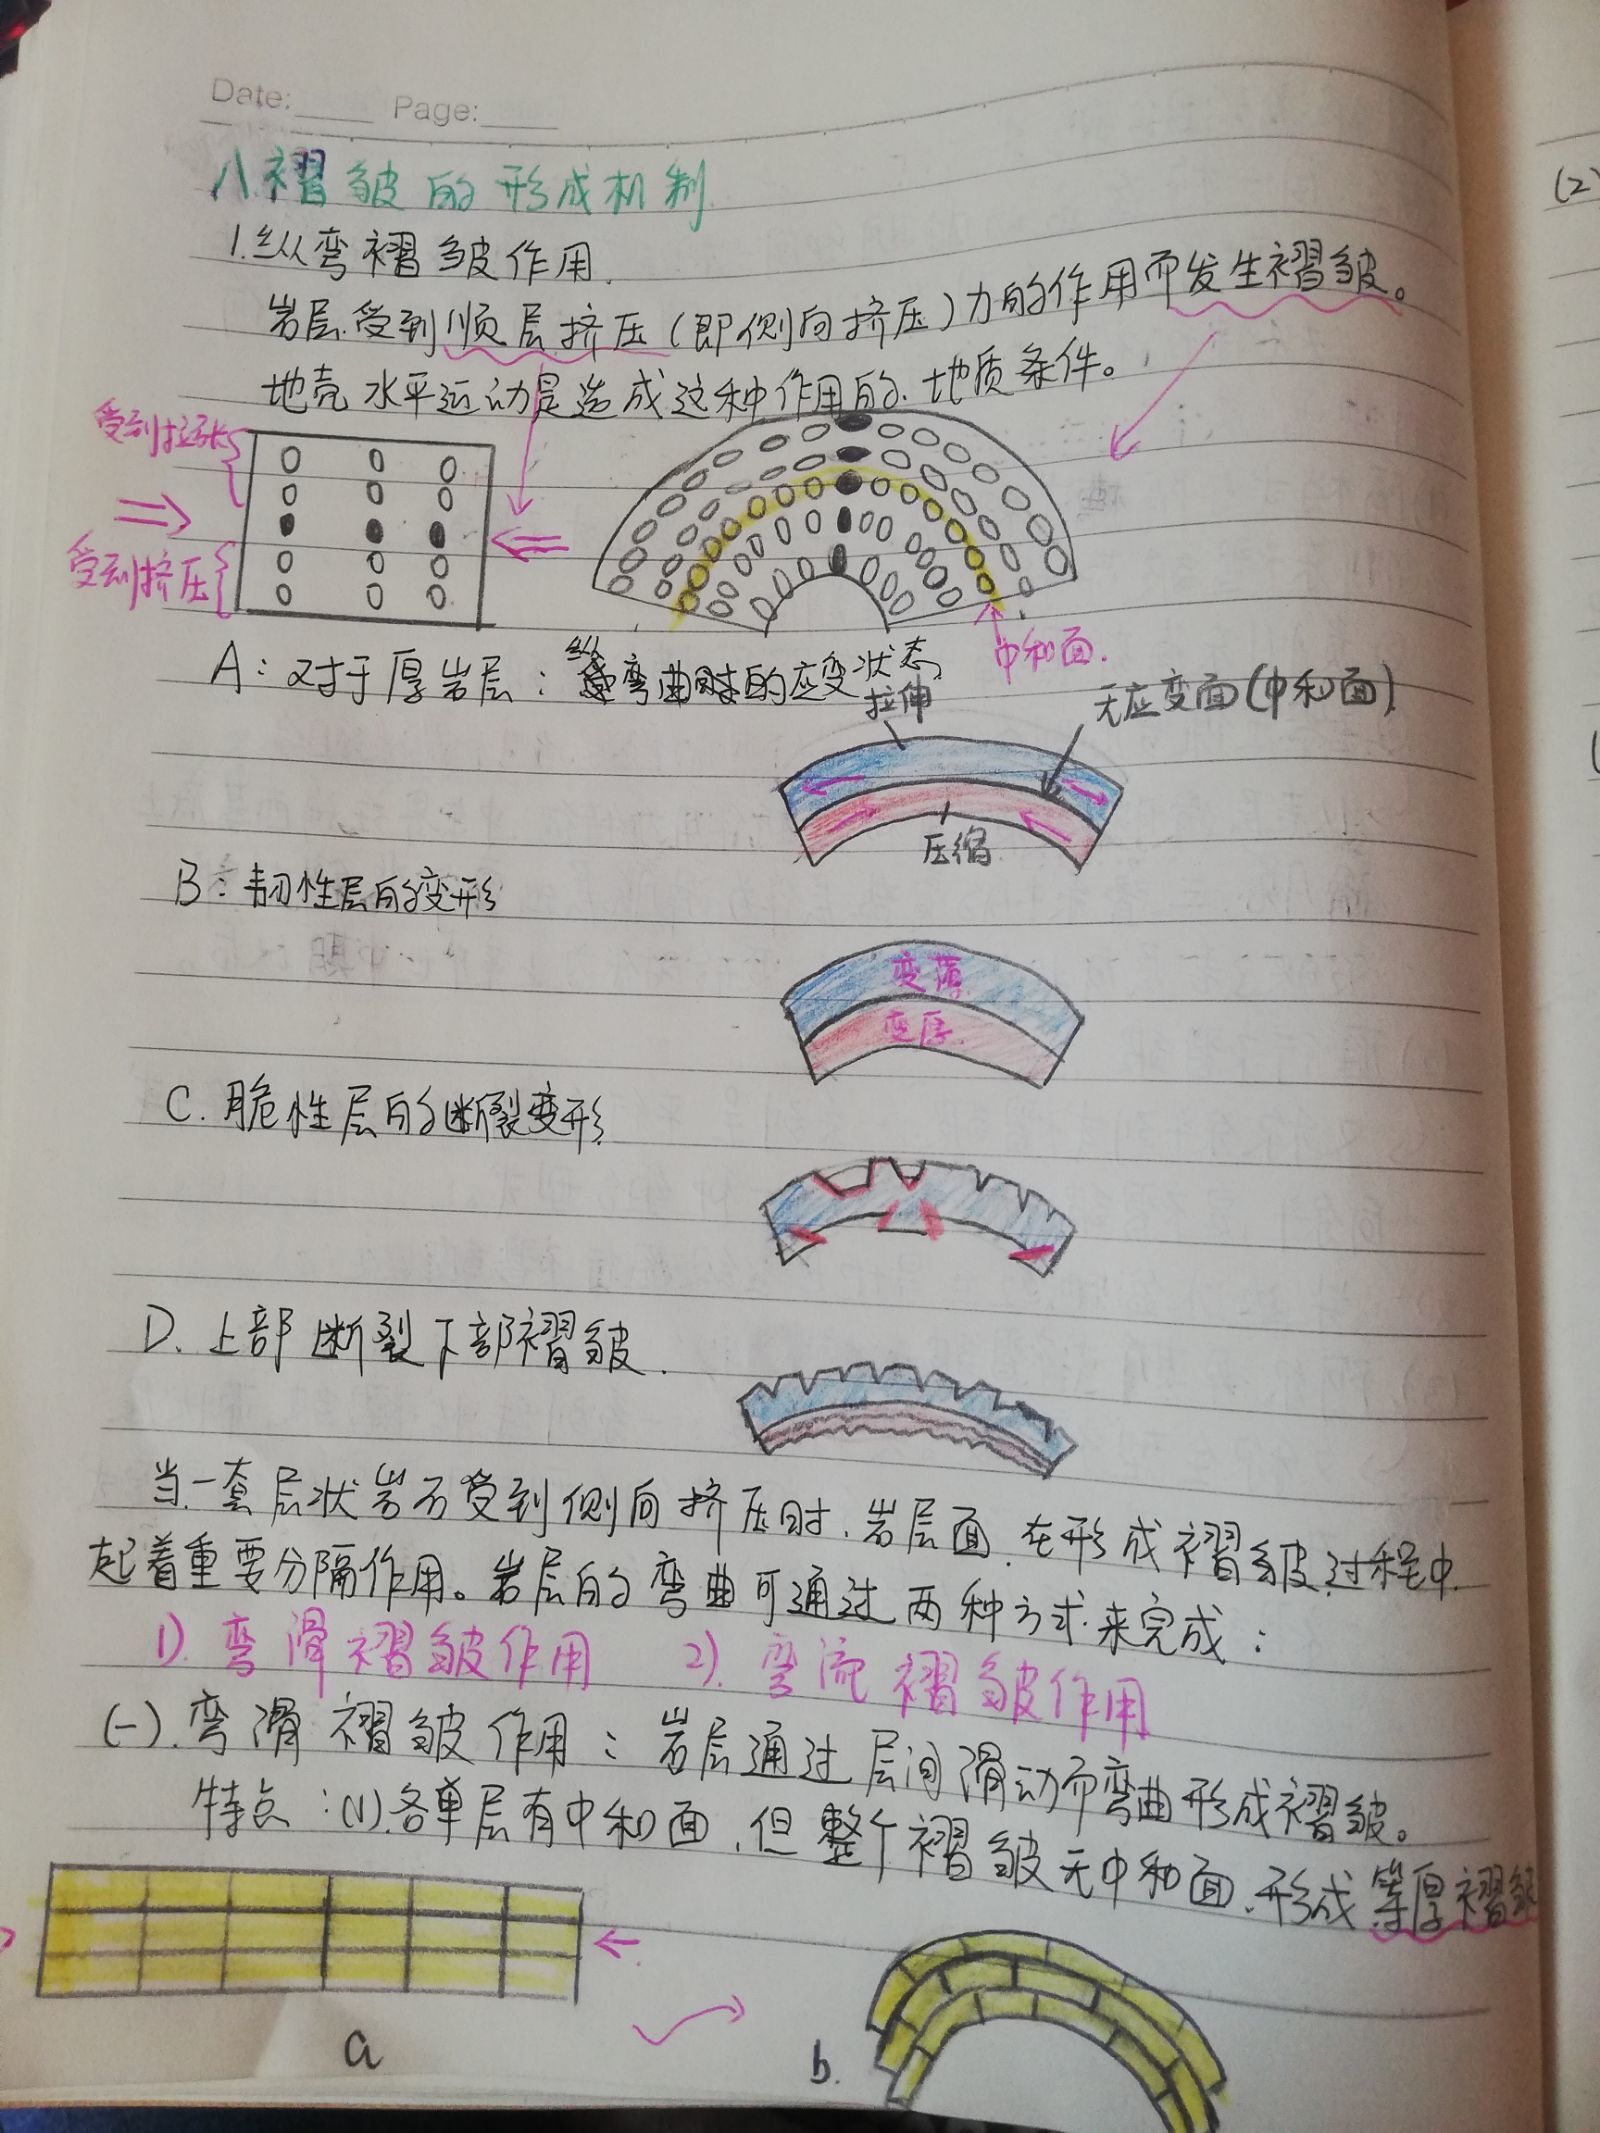 Date: Page:
八.褶皱的形成机制
(2)
1.纵弯褶皱作用.
岩层受到顺层挤压(即侧向挤压)力的作用而发生褶皱。
地壳水平运动是造成这种作用的地质条件。
受到拉张
受到挤压
中和面.
A:对于厚岩层:纵弯曲时的应变状态
拉伸
无应变面(中和面)
压缩
B:韧性层的变形
变薄
变厚
C.脆性层的断裂变形
D.上部断裂下部褶皱.
当一套层状岩石受到侧向挤压时,岩层面在形成褶皱过程中
起着重要分隔作用。岩层的弯曲可通过两种方式来完成:
1).弯滑褶皱作用 2).弯流褶皱作用
(一).弯滑褶皱作用:岩层通过层间滑动而弯曲形成褶皱。
特点:(1).各单层有中和面,但整个褶皱无中和面.形成等厚褶皱
a
b.